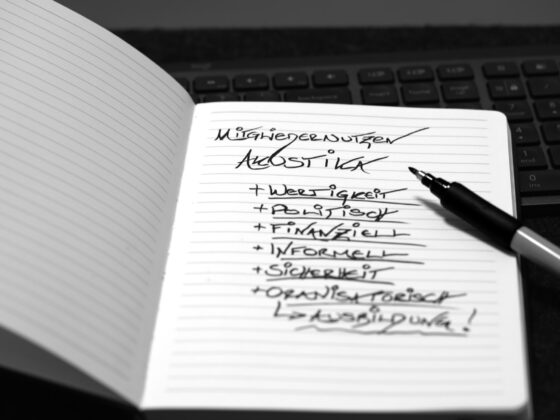 MITGLIEDERNUTZEN
AKUSTIKA
+ WERTIGKEIT
+ POLITISCH
+ FINANZIELL
+ INFORMELL
+ SICHERHEIT
+ ORANISATORISCH
↳ AUSBILDUNG!